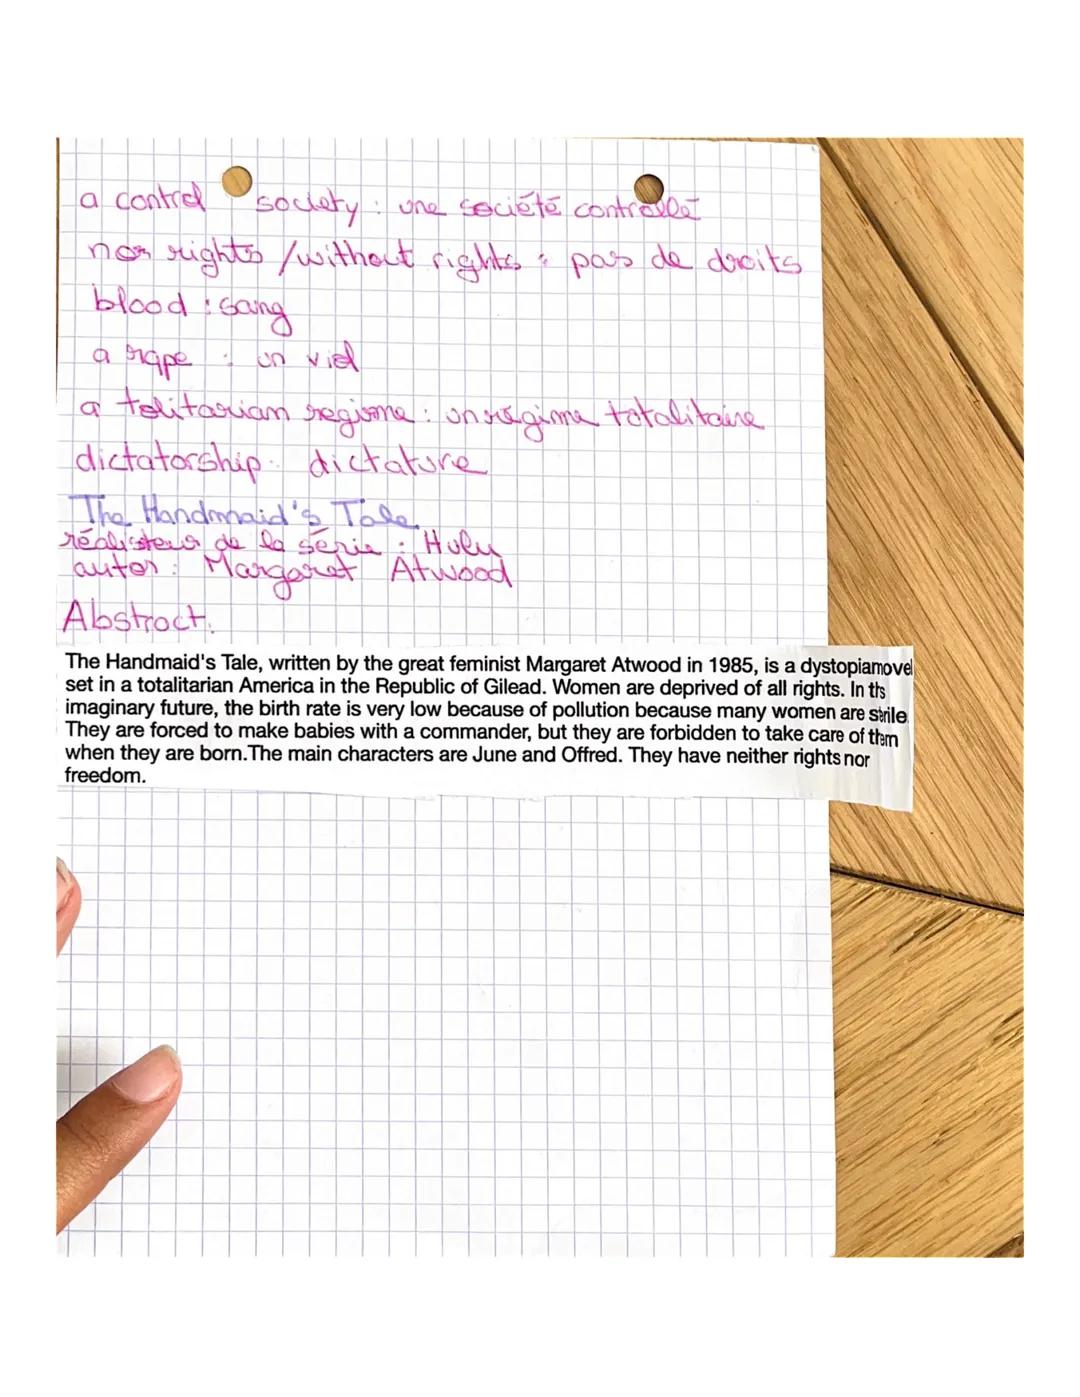 a control society : une société contrôlée
non rights / without rights : pas de droits
blood : sang
a rape : un viol
a tolitarian regime : un régime totalitaire
dictatorship : dictature
The Handmaid's Tale
réalisteur de la série : Hulu
autor : Margaret Atwood
Abstract :
The Handmaid's Tale, written by the great feminist Margaret Atwood in 1985, is a dystopianovel
set in a totalitarian America in the Republic of Gilead. Women are deprived of all rights. In this
imaginary future, the birth rate is very low because of pollution because many women are sterile.
They are forced to make babies with a commander, but they are forbidden to take care of them
when they are born.The main characters are June and Offred. They have neither rights nor
freedom.